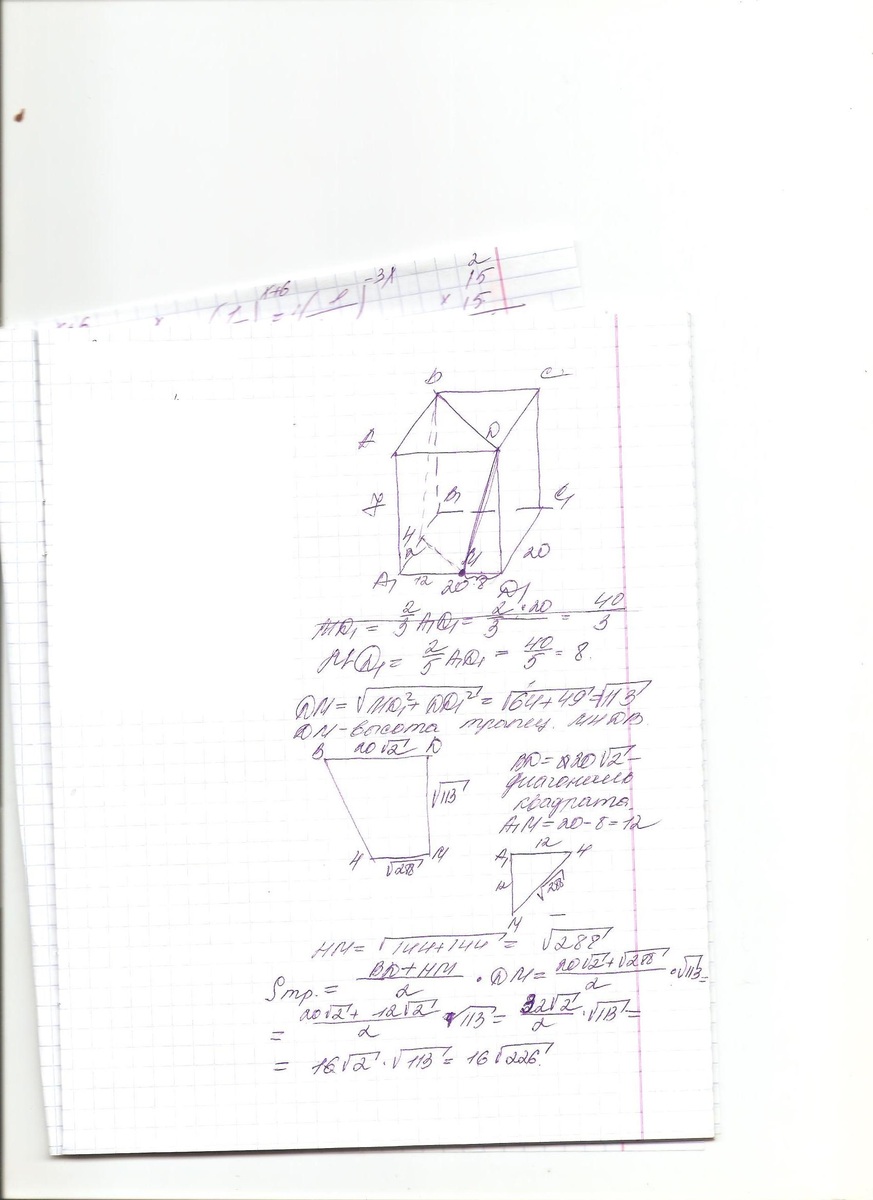 x+6 -3x 2
(1) = (1) 15
x 15
B C
A D
7 B1 C1
H
12 M 20
A1 12 20 8 D1
MD1 = 2/3 A1D1 = 2·20/3 = 40/3
MD1 = 2/5 A1D1 = 40/5 = 8.
DM = √MD1² + DD1² = √64+49 = √113
DM - высота трапец. MHDB
B 20√2 D
√113
H √288 M
BD = 20√2 -
диагональ
квадрата
A1M = 20-8 = 12
12
A1 H
12 √288
M
HM = √144+144 = √288
Sтр. = BD+HM/2 · DM = 20√2+√288/2 · √113 =
= 20√2 + 12√2/2 · √113 = 32√2/2 · √113 =
= 16√2 · √113 = 16√226.